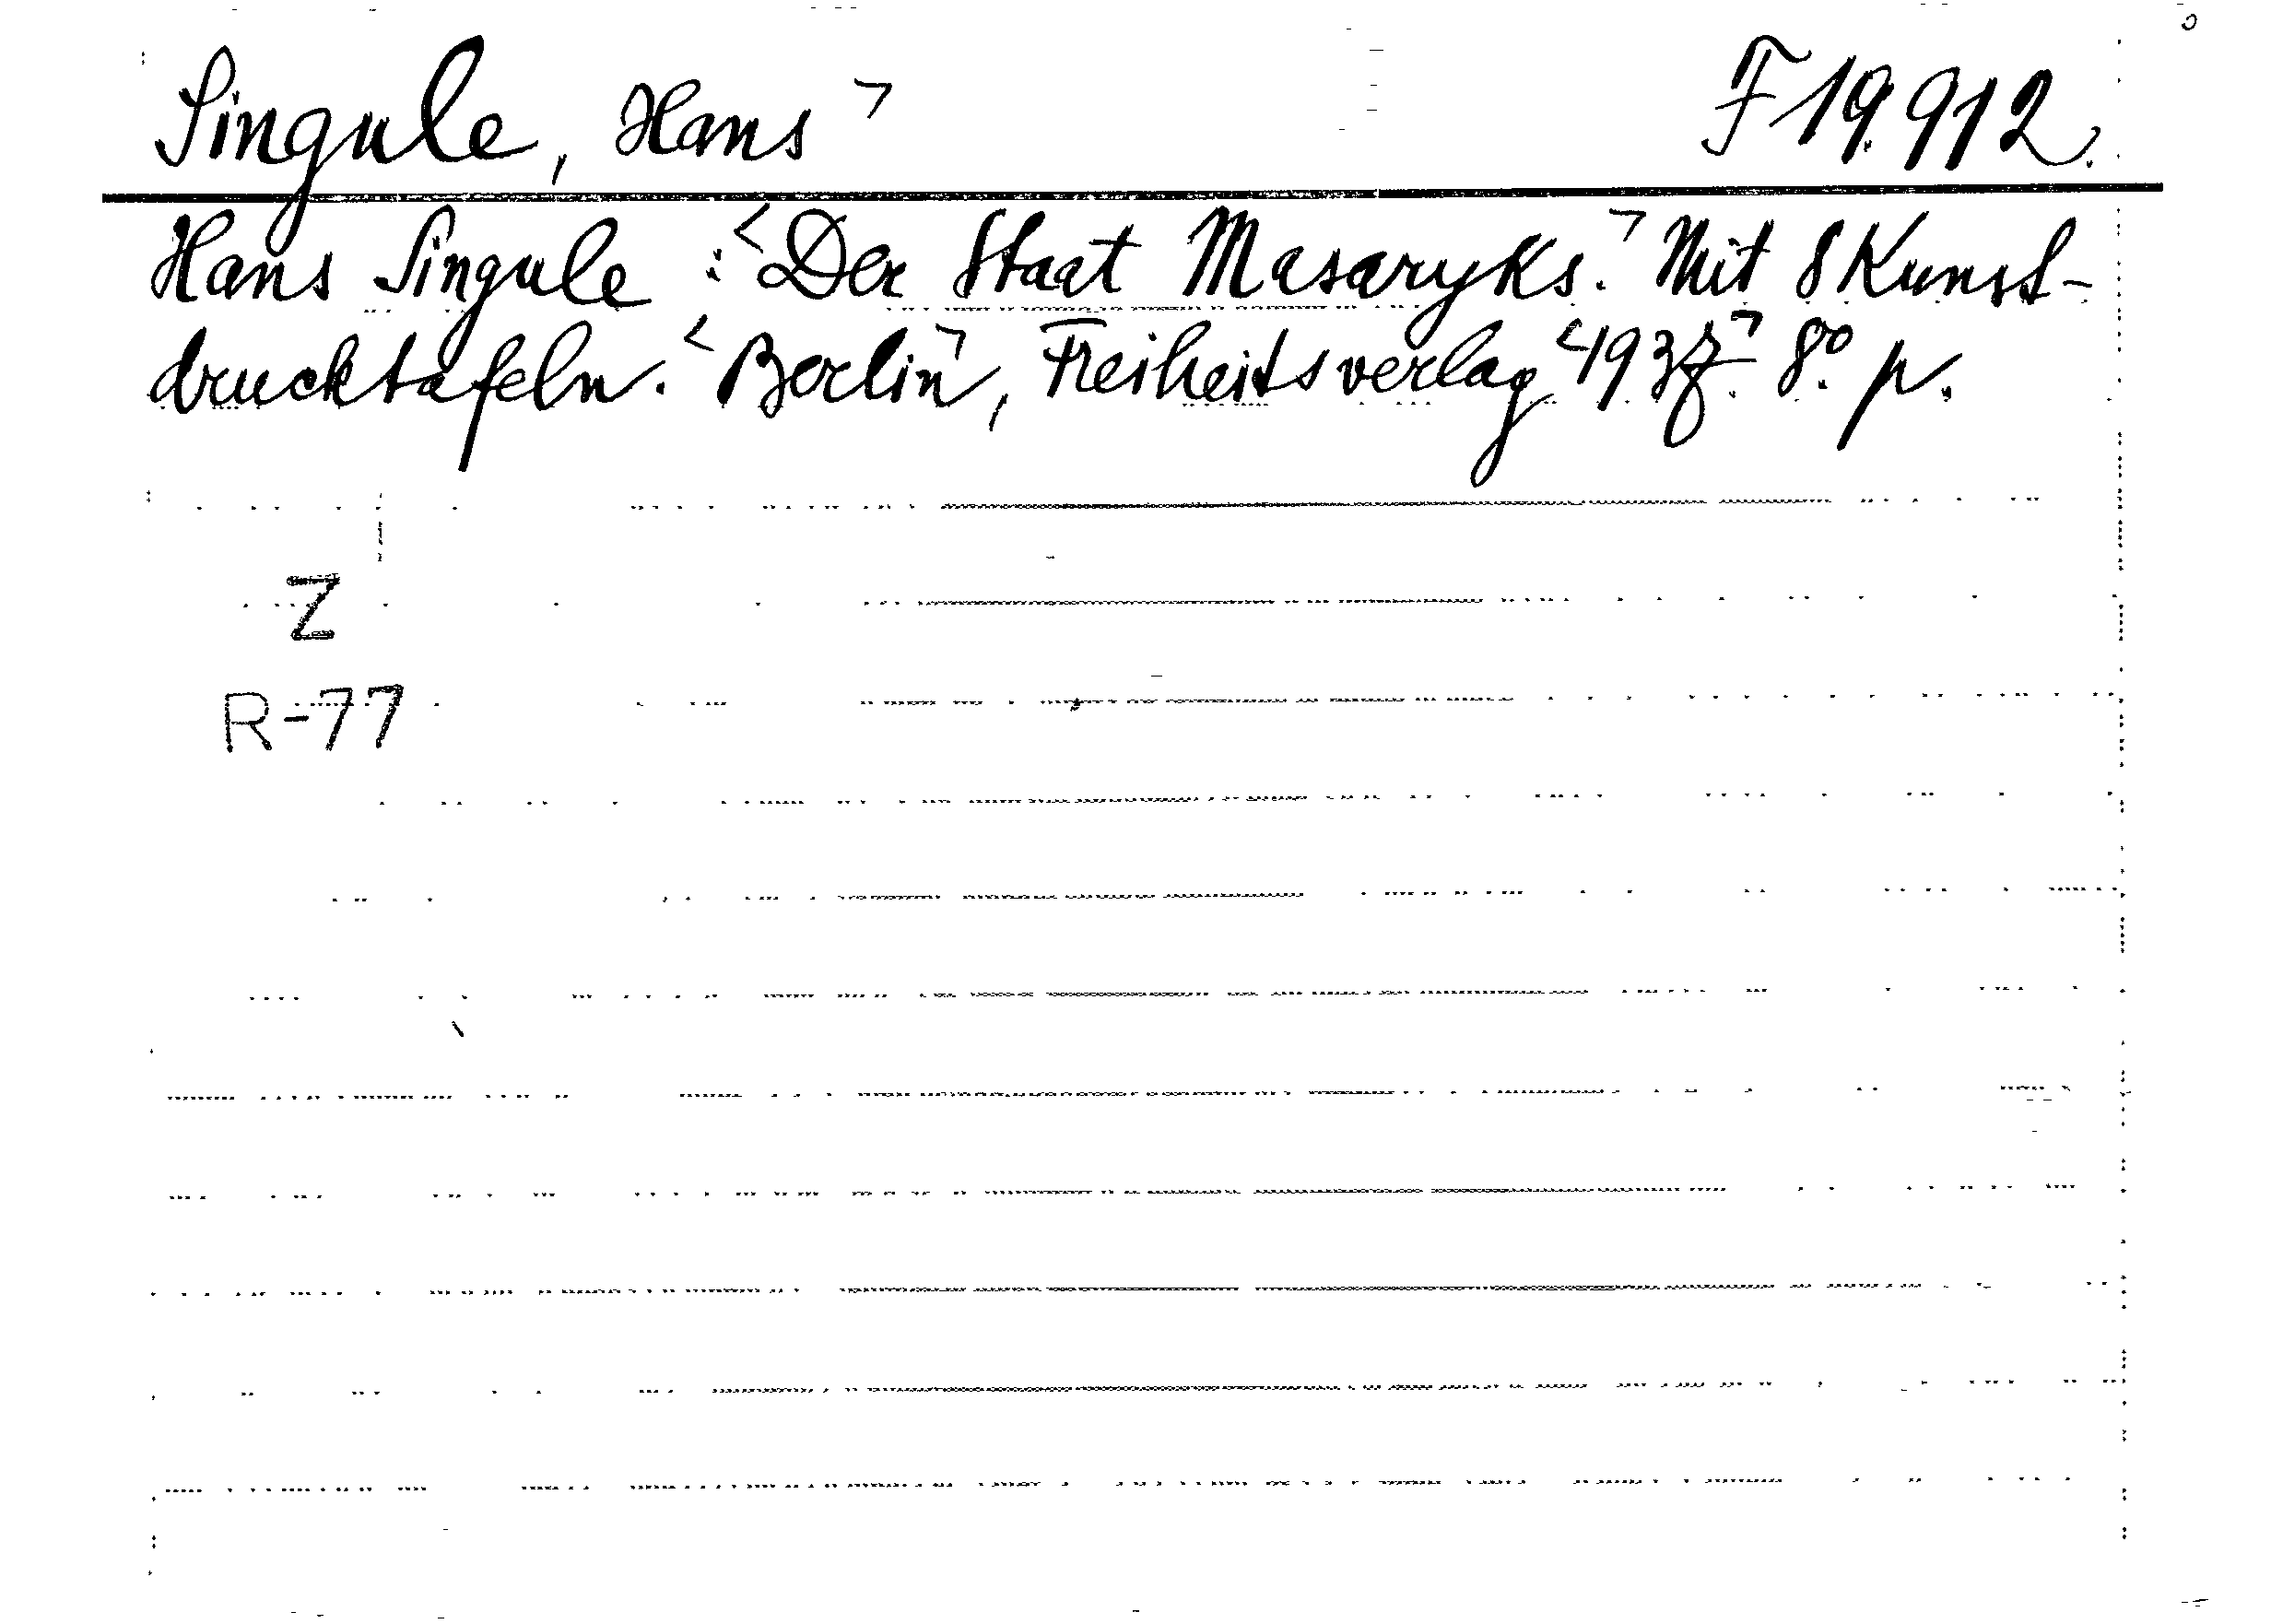 Singule, Hans ¬ F 19.912.
Hans Singule : <Der Staat Masaryks.¬ Mit 8 Kunst-
drucktafeln. <Berlin¬, Freiheitsverlag <1937.¬ 8° p.
Z
R-77